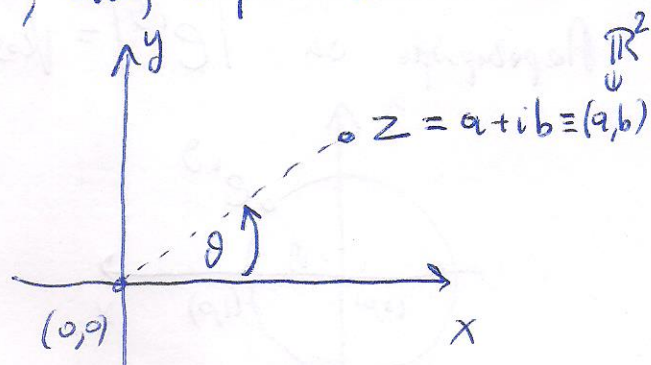 y
ℝ²
⇓
z = a+ib ≡ (a,b)
θ
(0,0)
x